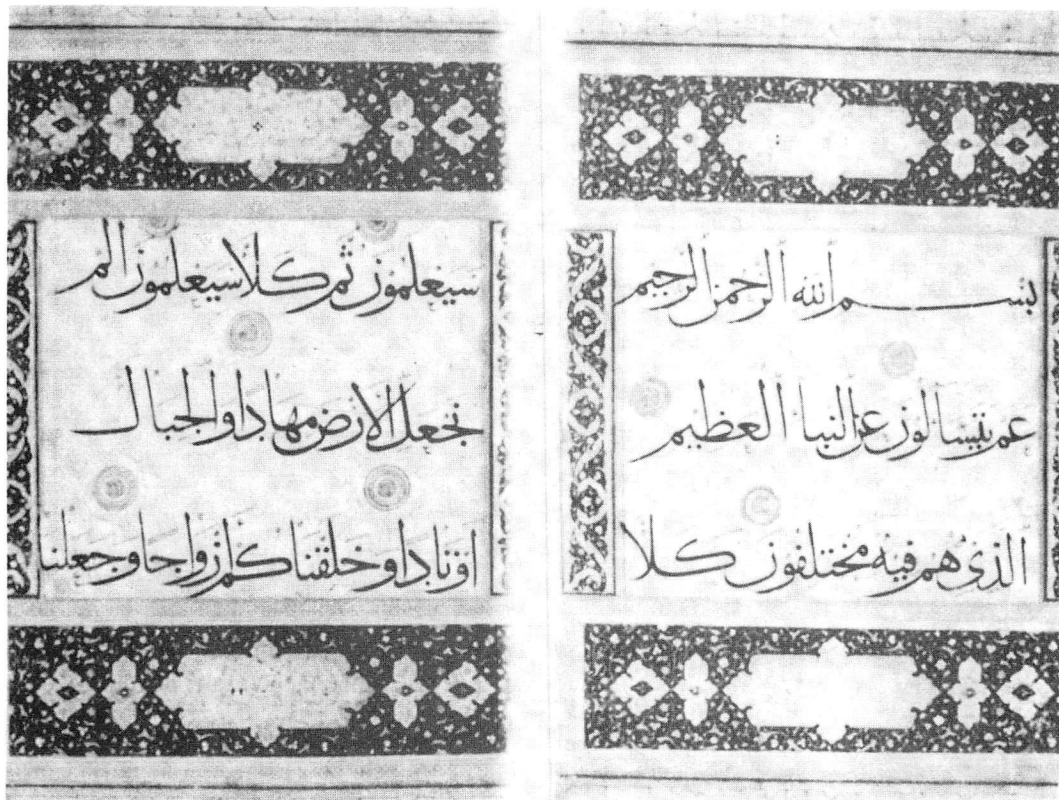 بسم الله الرحمن الرحيم
عم يتسالون عن النبا العظيم
الذى هم فيه مختلفون كلا
سيعلمون ثم كلا سيعلمون الم
نجعل الارض مهادا والجبال
اوتادا وخلقناكم ازواجا وجعلنا